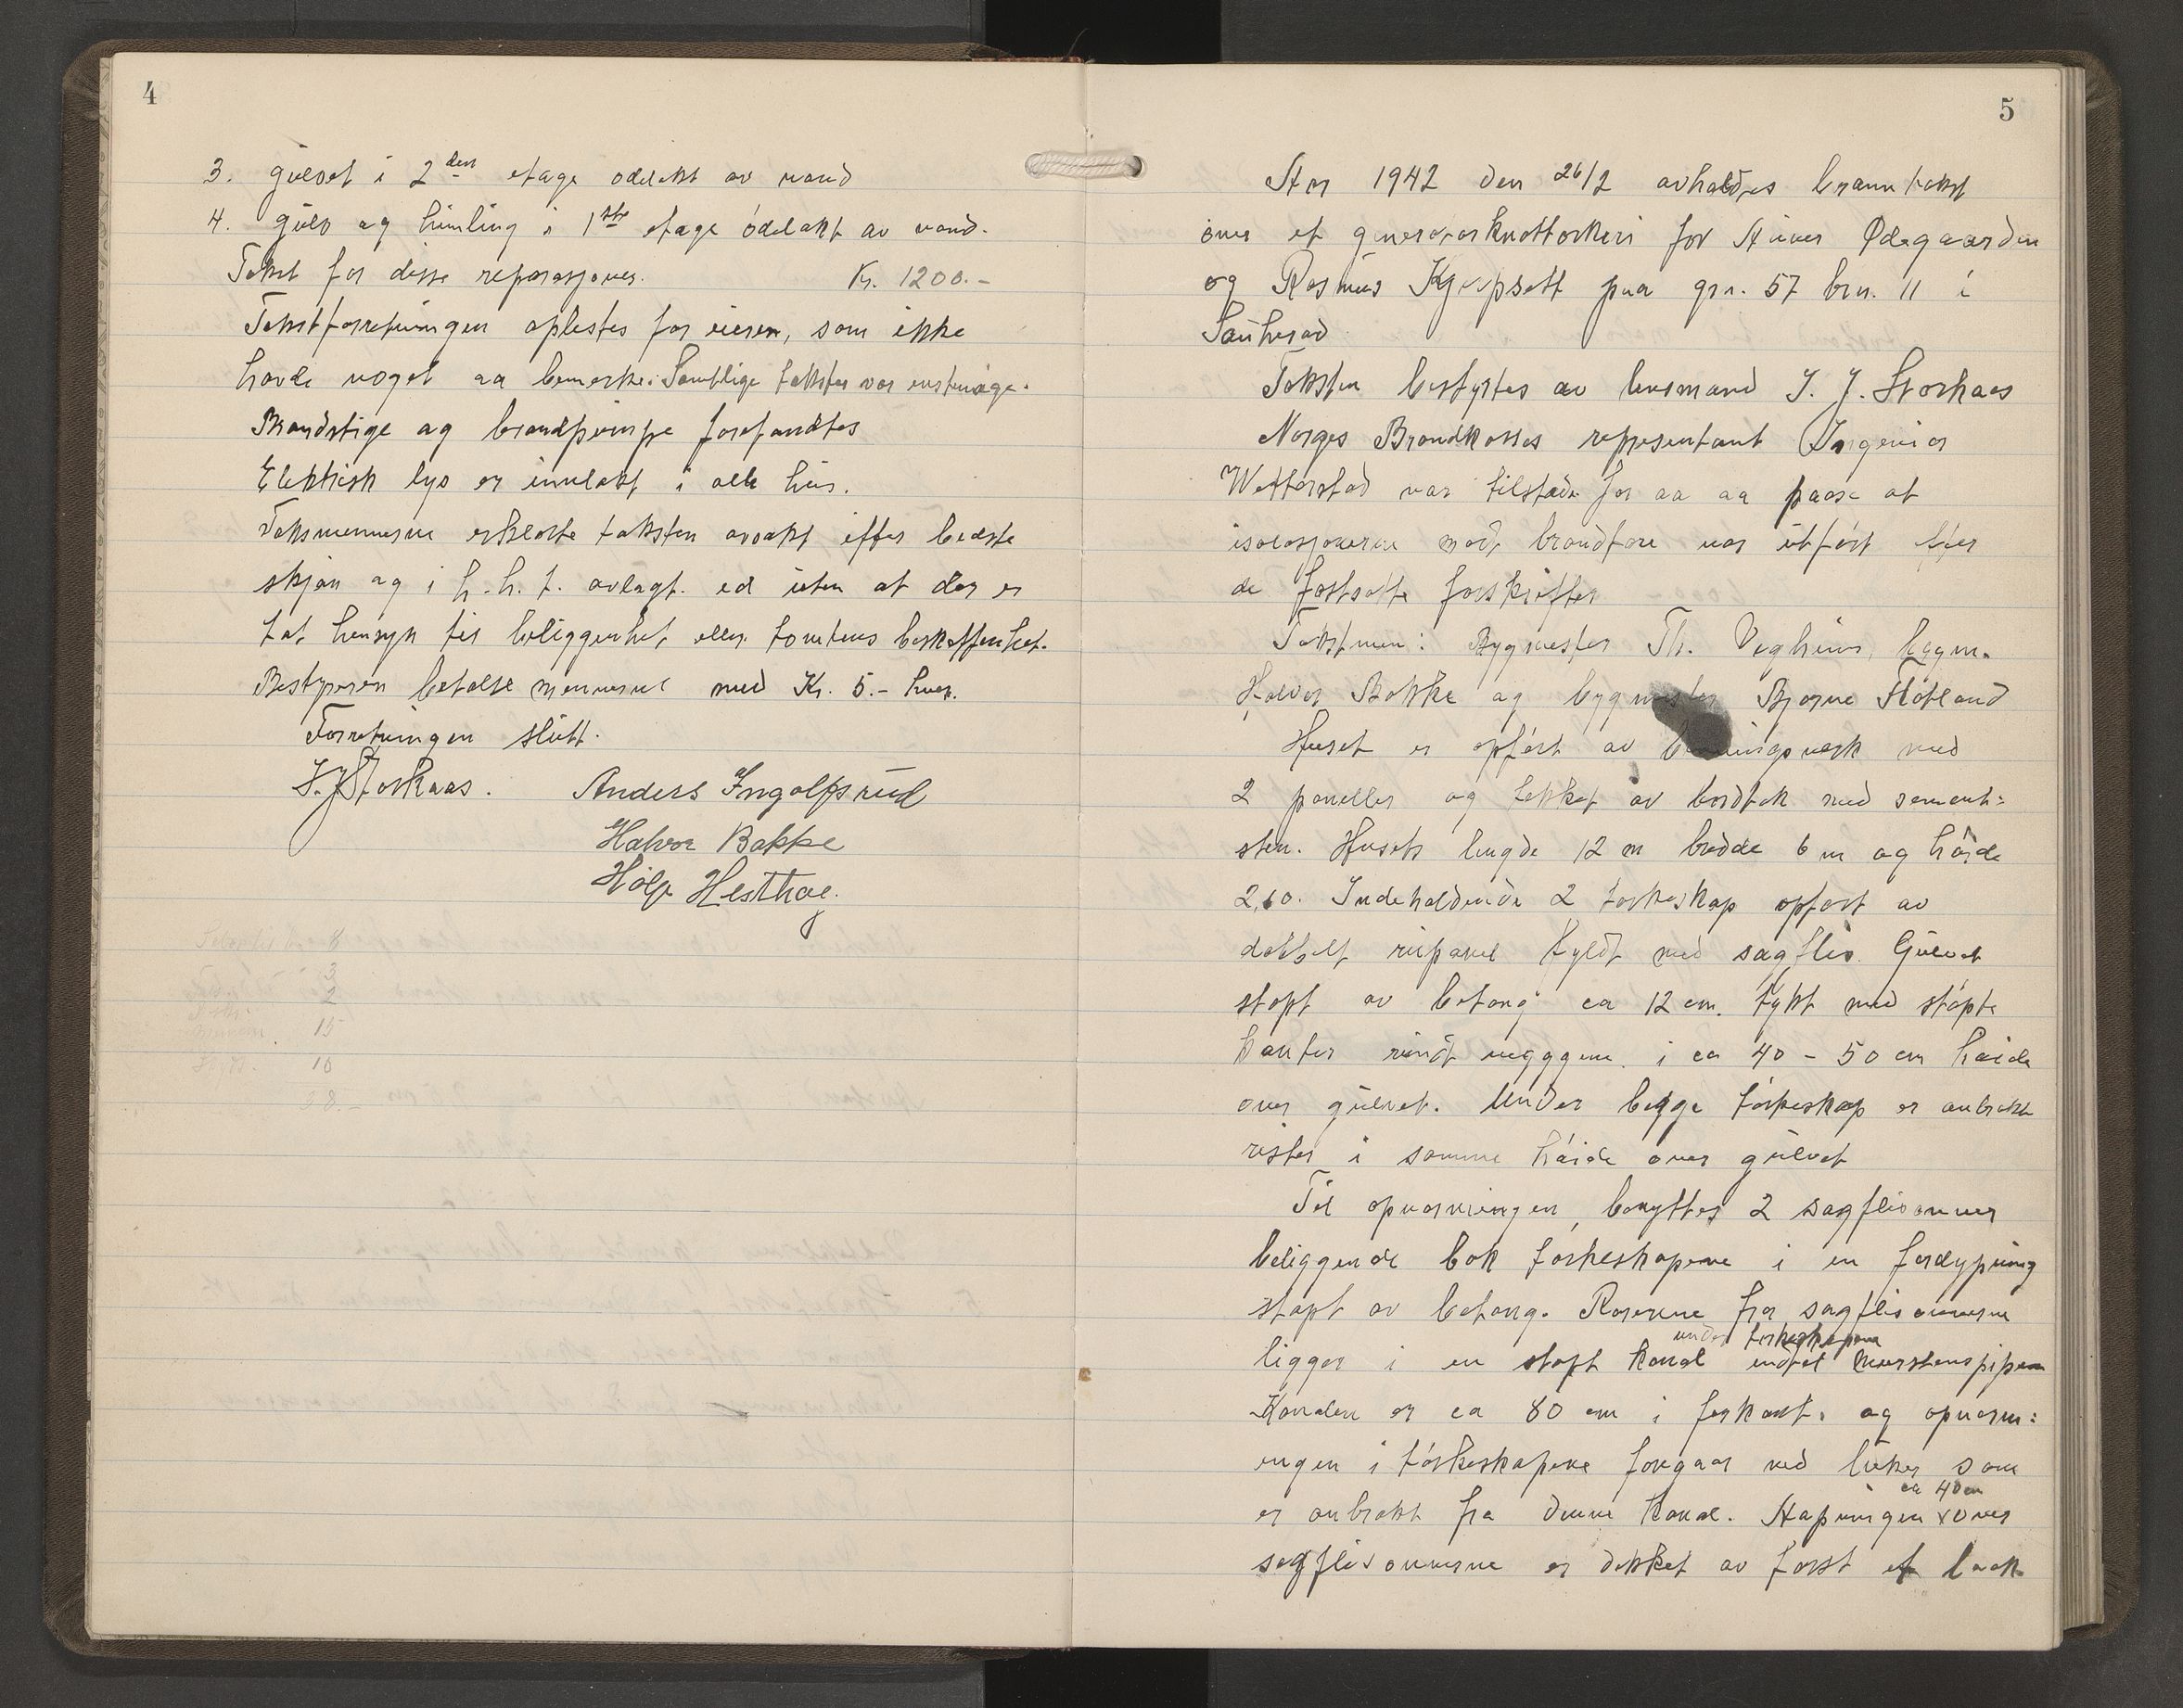 4
3. gulvet i 2den etage ødelakt av vand
4. gulv og himling i 1ste etage ødelakt av vand.
Takst for disse reparasjoner. Kr. 1200.-
Takstforretningen oplestes for eieren, som ikke
havde noget aa bemerke. Samtlige takster var enstemige.
Brandstige og brandpumpe forefandtes
Elektrisk lys er innlakt i alle hus.
Taksmennerne erklærte taksten avvakt efter bedste
skjøn og i h.h.t. avlagt ed uten at der er
tat hensyn til beliggenhet eller tomtens beskaffenhet.
Bestyreren betalte mennerne med Kr. 5.- hver.
Forretningen slutt.
J. J. Storhaas. Anders Ingolfsrud
Halvor Bakke
Hølje Hesthag.
8
3
2
15
10
38.-
5
Aar 1942 den 26/2 avholdtes branntakst
over et generatorknottørkeri for Steiner Ødegaarden
og Rasmus Kjerpsett paa grn. 57 brn. 11 i
Sauherad
Taksten bestyrtes av lensmand J. J. Storhaas
Norges Brandkasses representant Ingeniør
Wetterstad var tilstede for aa aa passe at
isolasjonerne mot brandfare var utført efter
de fastsatte forskrifter
Takstmen: Bygmester Th. Vegheim, bygm.
Halvor Bakke og bygmester Bjarne Flåtland
Huset er opført av bindingsverk med
2 paneller og tekket av bordtak med sement-
sten. Husets lengde 12 m bredde 6 m og høide
2,60. Indeholdende 2 tørkeskap opført av
dobbelt rupanel fyldt med sagflis. Gulvet
støpt av betong ca 12 cm. tykt med støpte
kanter rundt veggene i ca 40 - 50 cm høide
over gulvet. Under begge tørkeskap er anbrakt
rister i samme høide over gulvet
Til opvarmingen benyttes 2 sagflisovner
beliggende bak tørkeskapene i en fordypning
støpt av betong. Rørerne fra sagflisovnerne
under tørkeskapene
ligger i en støpt kanal indtil murstenspipen
Kanalen er ca 80 cm i firkant. og opvarm-
ingen i tørkeskapene foregaar ved luker som
ca 40 cm
er anbrakt fra denne kanal. Aapningen over
sagflisovnerne er dekket av først et lag